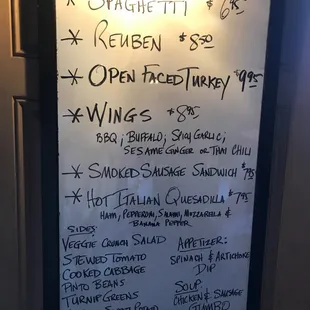 * SPAGHETTI $6.95
* REUBEN $8.50
* OPEN FACED TURKEY $9.95
* WINGS $8.95
BBQ; BUFFALO; SPICY GARLIC;
SESAME GINGER OR THAI CHILI
* SMOKED SAUSAGE SANDWICH $7.95
* HOT ITALIAN QUESADILLA $7.95
HAM, PEPPERONI, SALAMI, MOZZARELLA &
BANANA PEPPER
SIDES:
VEGGIE CRUNCH SALAD
STEWED TOMATO
COOKED CABBAGE
PINTO BEANS
TURNIP GREENS
POTATO
APPETIZER:
SPINACH & ARTICHOKE
DIP
SOUP:
CHICKEN & SAUSAGE
GUMBO